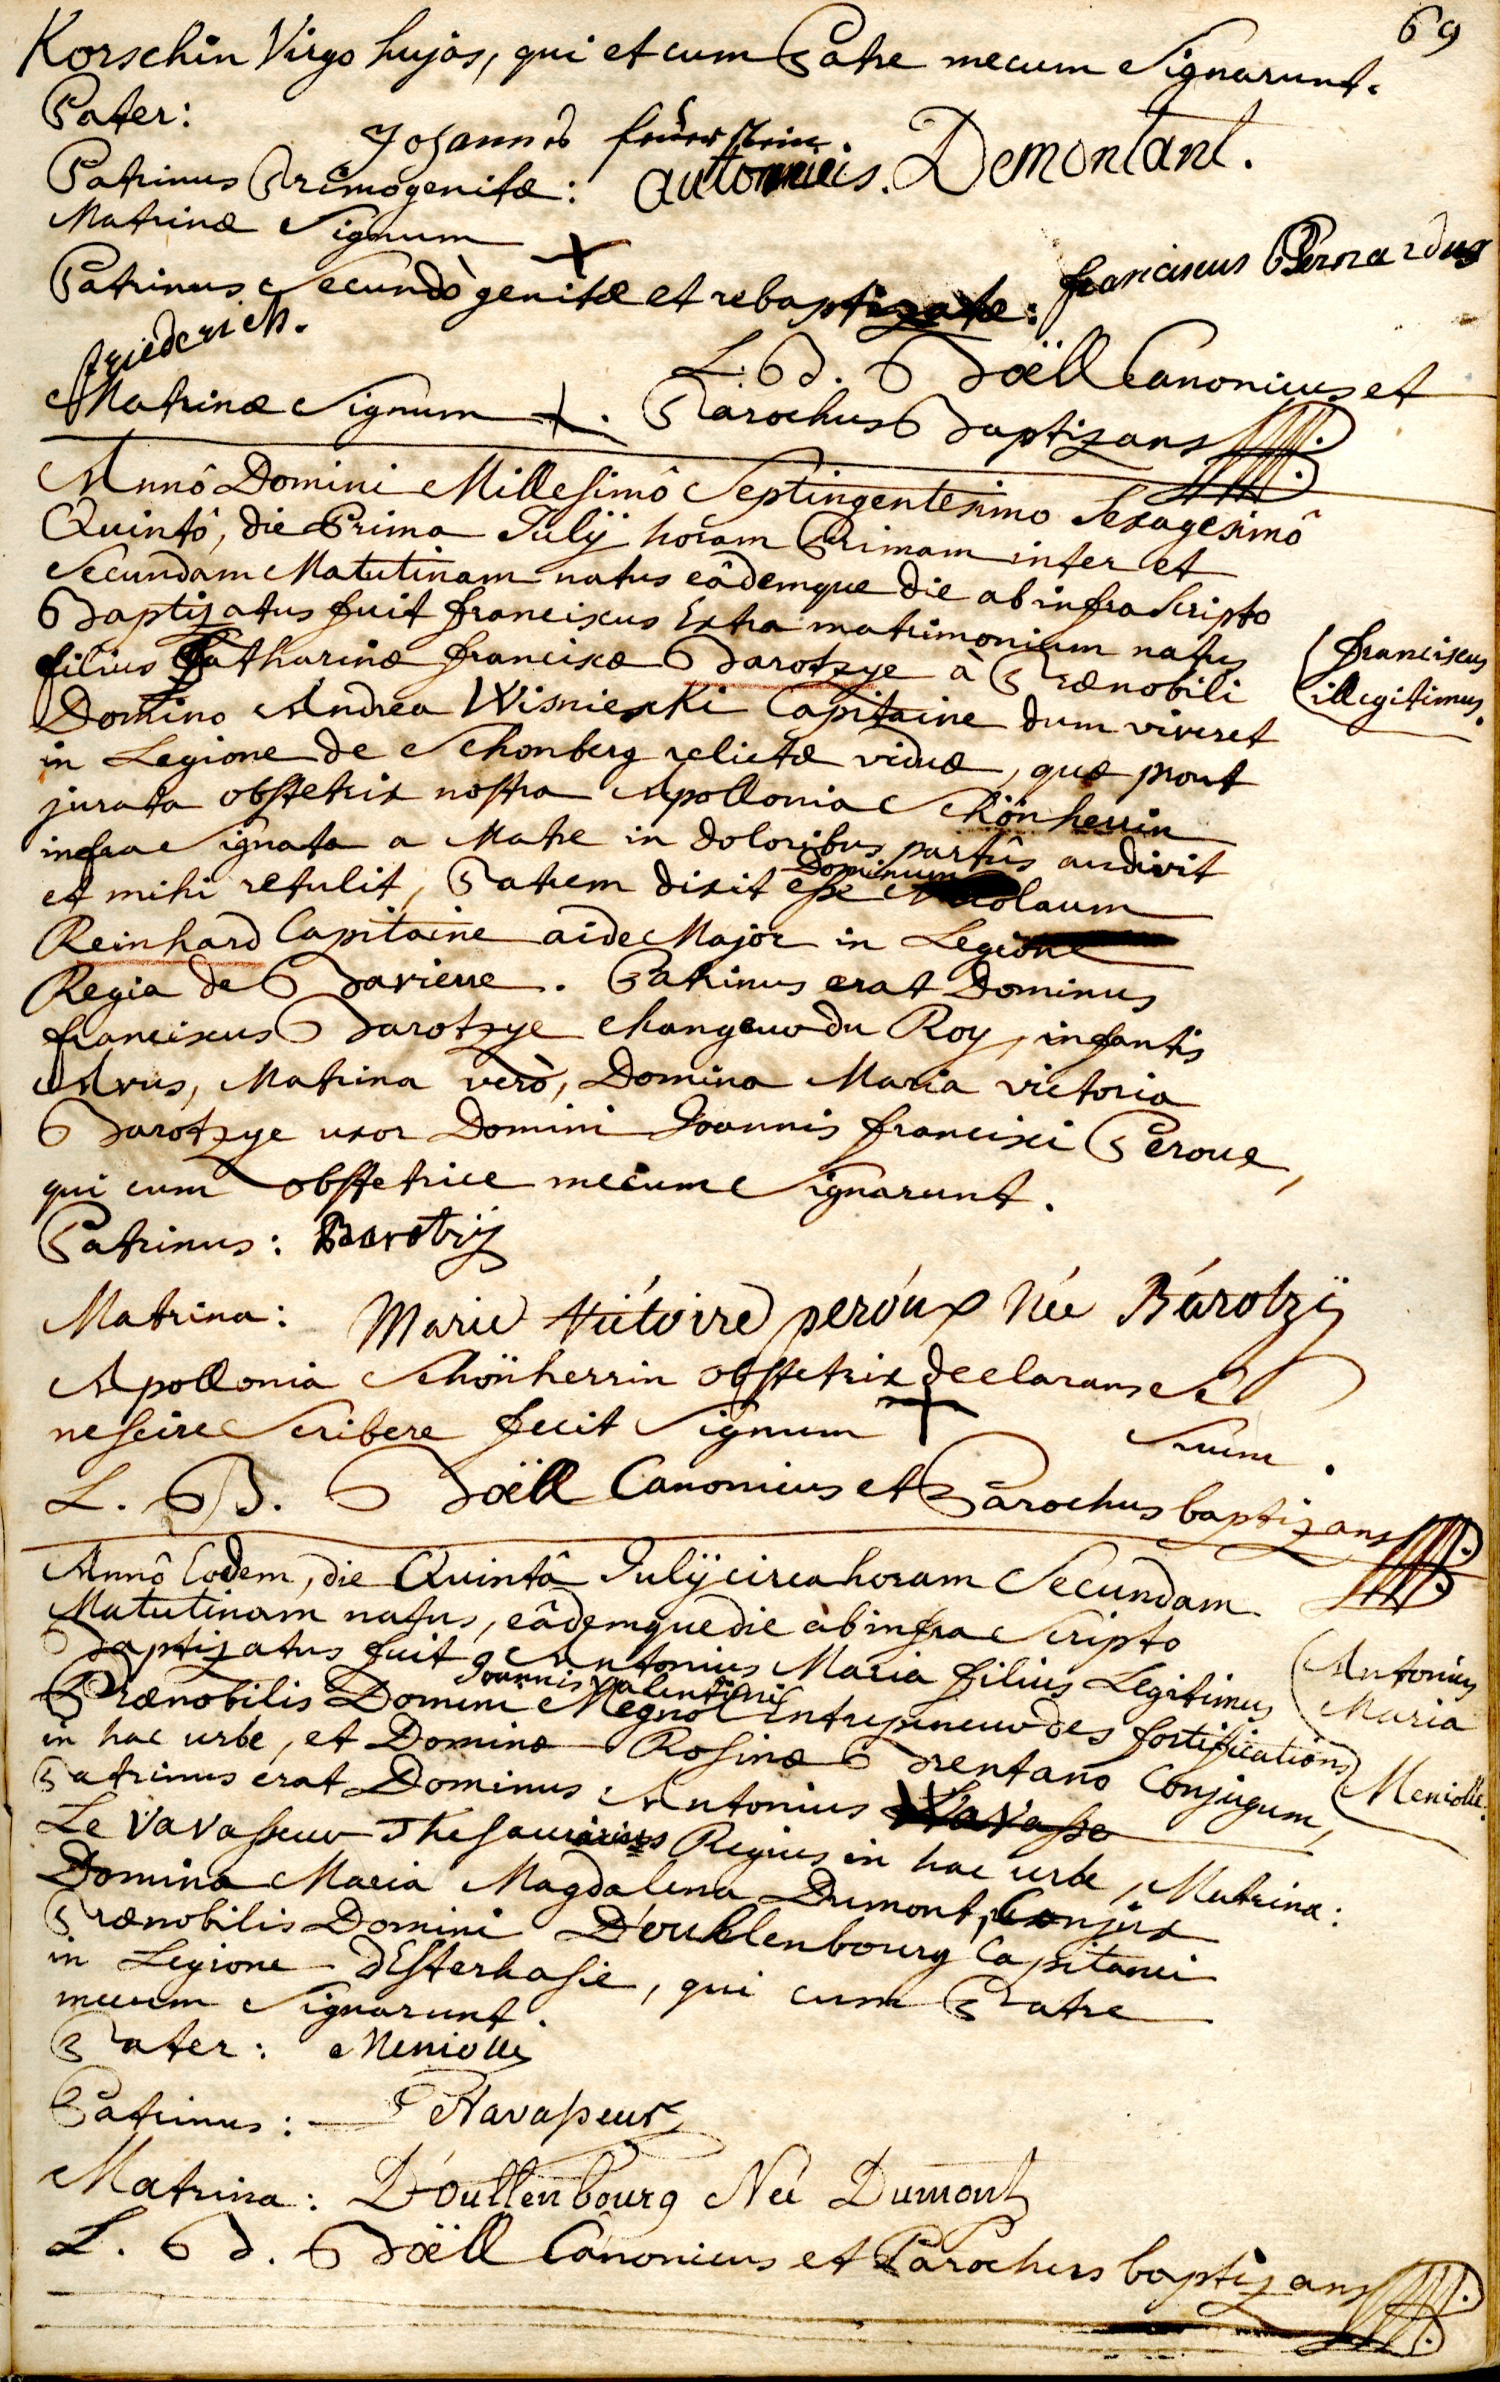 69
Korschin Virgo hujas, qui et cum Patre mecum Signarunt.
Pater: Johannes feüerstein.
Patrinus Primogenitæ: antonnius. Demontant.
Matrinæ Signum +
Patrinus Secundò genitæ et rebaptizatæ: franciscus Bernardus
friederich.
Matrinæ Signum +. L. B. Böell Canonicus et
Parochus Baptizans
Annô Domini Millesimô Septingentesimo Sexagesimô
Quintô, die Prima Julÿ horam Primam inter et
Secundam Matutinam natus eâdemque die ab infra Scripto
Baptizatus fuit franciscus Extra matrimonium natus
filius Catharinæ franciscæ Barotzye à Prænobili
Domino Andrea Wisnieski Capitaine dum viveret
in Legione de Schonberg relictæ viduæ, quæ prout
jurata obstetrix nostra Apollonia Schönherrin
infra Signata a Matre in doloribus partûs audivit
et mihi retulit, Patrem dixit esse Dominum Nicolaum
Reinhard Capitaine aide Major in Legione
Regia de Baviere. Patrinus erat Dominus
franciscus Barotzye changeur du Roy, infantis
Avus, Matrina verò, Domina Maria victoria
Barotzye uxor Domini Joannis francisci Peroux,
qui cum obstetrice mecum Signarunt.
franciscus
illegitimus.
Patrinus: Barotzij
Matrina: Marie Victoire peroux Née Barotzÿ
Apollonia Schönherrin obstetrix declarans Se
nescire Scribere fecit Signum + Suum.
L. B. Böell Canonicus et Parochus baptizans
Annô Eodem, die Quintâ Julÿ circa horam Secundam
Matutinam natus, eâdemque die ab infra Scripto
Baptizatus fuit Antonius Maria filius Legitimus
Prænobilis Domini Joannis Valentini Megnol Entrepreneur des fortifications
in hac urbe, et Dominæ Rosinæ Brentano Conjugum,
Patrinus erat Dominus Antonius
Le Vavasseur Thesaurarius Regius in hac urbe, Matrina:
Domina Maria Magdalena Dumont, Conjux
Prænobilis Domini D'outlenbourg Capitanei
in Legione d'Esterhasie, qui cum Patre
mecum Signarunt.
Antonius
Maria
Meniolle.
Pater: Meniolle
Patrinus: Vavasseur
Matrina: D'outlenbourg Née Dumont
L. B. Böell Canonicus et Parochus baptizans